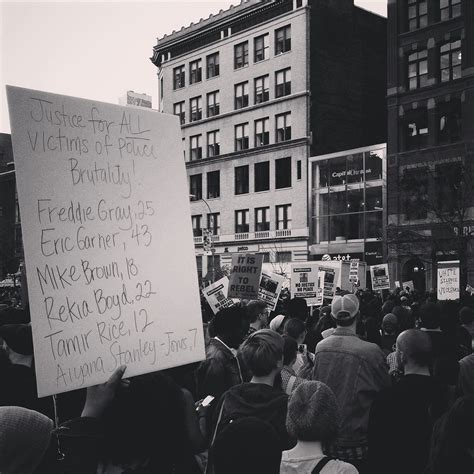 Justice for ALL
Victims of Police
Brutality!
Freddie Gray, 25
Eric Garner, 43
Mike Brown, 18
Rekia Boyd, 22
Tamir Rice, 12
Aiyana Stanley-Jones, 7
Capital
petco
at&t
IT IS
RIGHT TO
REBEL
NO JUSTICE
NO PEACE
WHITE
SILENCE